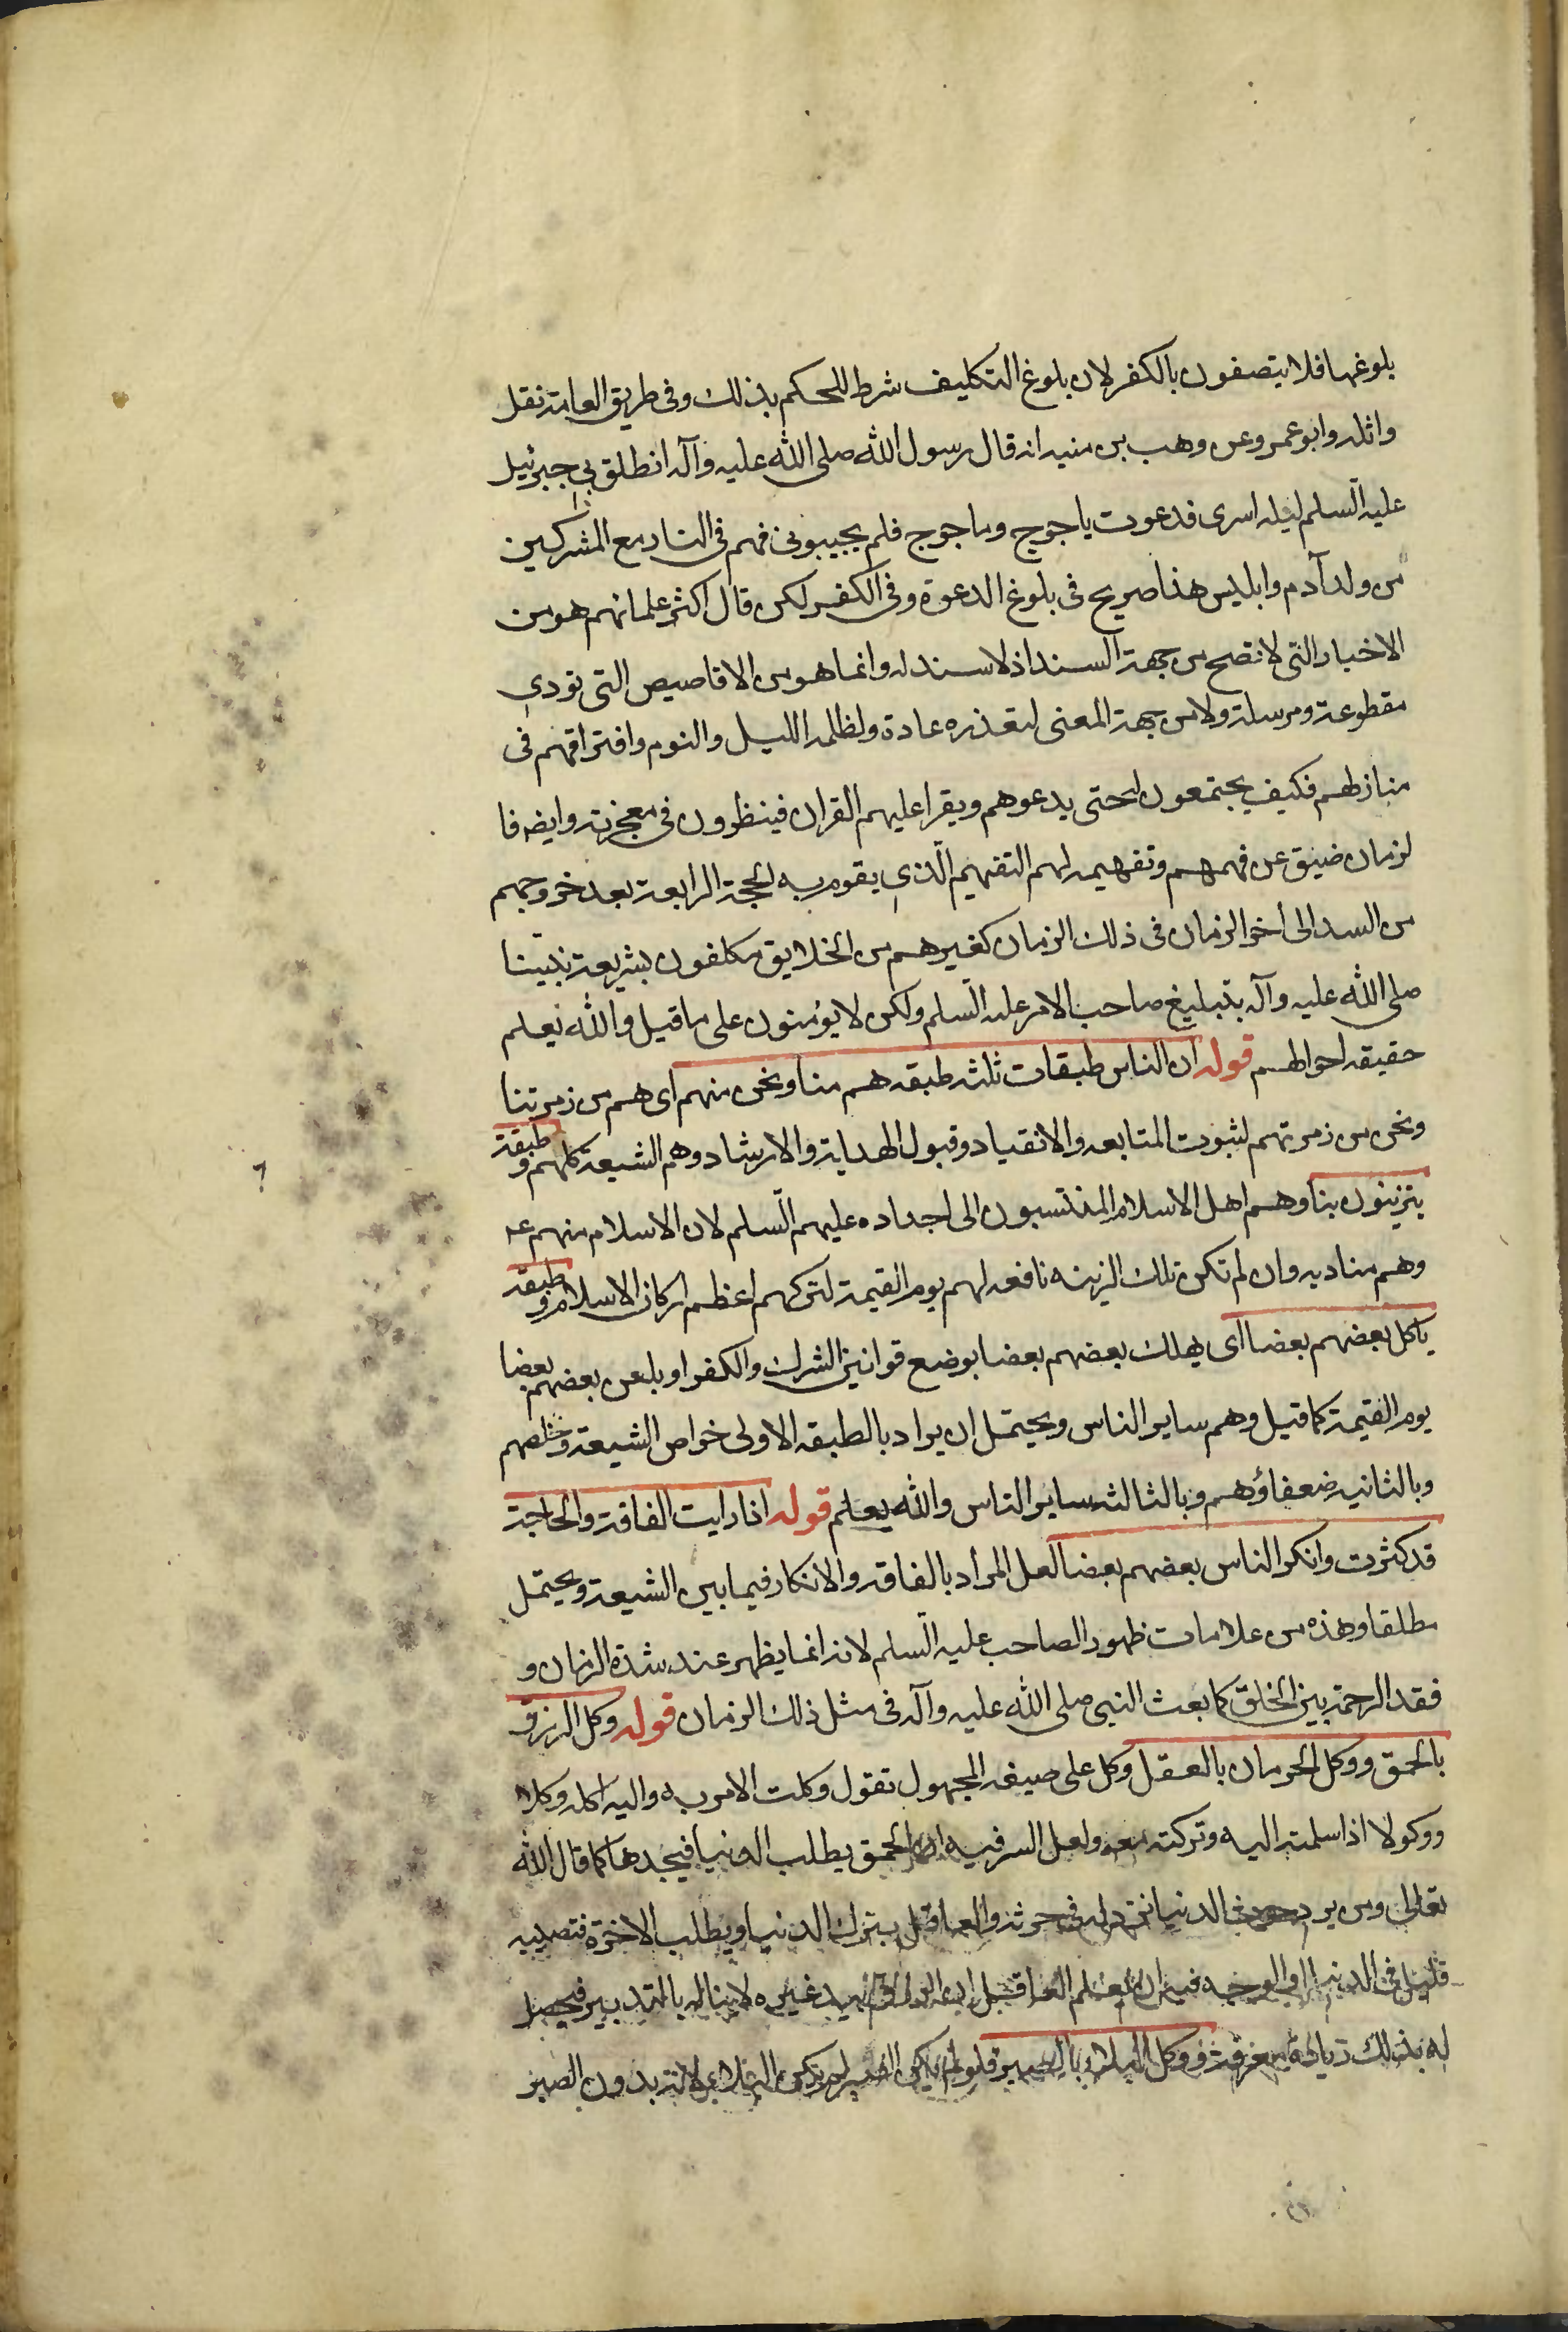 بلوغها فلا يتصفون بالكفر لان بلوغ التكليف شرط للحكم بذلك وفى طريق العامة نقل
واثله وابو عمرو عن وهب بن منبه انه قال رسول الله صلى الله عليه وآله انطلق بى جبرئيل
عليه السلم ليله اسرى فدعوت ياجوج وماجوج فلم يجيبونى فهم فى النار مع المشركين
من ولد آدم وابليس هذا صريح فى بلوغ الدعوة وفى الكفر لكن قال اكثر علمائهم هو من
الاخبار التى لا تصح من جهة السند اذ لا سند له وانما هو من الاقاصيص التى تودى
مقطوعة ومرسلة ولا من جهة المعنى لتعذره عادة ولظلمه الليل والنوم وافتراقهم فى
منازلهم فكيف يجتمعون له حتى يدعوهم ويقرا عليهم القران فينظرون فى معجزته وايضه فا
لزمان ضيق عن فهمهم وتفهيمه لهم التفهيم الذى يقوم به الحجة الرابعة بعد خروجهم
من السد الى اخر الزمان فى ذلك الزمان كغيرهم من الخلايق مكلفون بشريعة نبينا
صلى الله عليه وآله بتبليغ صاحب الامر عليه السلم ولكن لا يؤمنون على ما قيل والله يعلم
حقيقه احوالهم قوله ان الناس طبقات ثلثه طبقه هم منا ونحن منهم اى هم من زمرتنا
ونحن من زمرتهم لثبوت المتابعه والانقياد وقبول الهداية والارشاد وهم الشيعة كلهم وطبقة
يتزينون بنا وهم اهل الاسلام المنتسبون الى اجداده عليهم السلم لان الاسلام منهم عم
وهم مناديه وان لم تكن تلك الزينه نافعه لهم يوم القيمة لتركهم اعظم اركان الاسلام وطبقه
ياكل بعضهم بعضا اى يهلك بعضهم بعضا بوضع قوانين الشرك والكفر او يلعن بعضهم بعضا
يوم القيمة كما قيل وهم ساير الناس ويحتمل ان يراد بالطبقه الاولى خواص الشيعة وخلصهم
وبالثانيه ضعفاؤهم وبالثالثه ساير الناس والله يعلم قوله اذا رايت الفاقة والحاجة
قد كثرت وانكر الناس بعضهم بعضا لعل المراد بالفاقه والانكار فيما بين الشيعة ويحتمل
مطلقا وهذه من علامات ظهور الصاحب عليه السلم لانه انما يظهر عند شدة الزمان و
فقد الرحمة بين الخلق كما بعث النبى صلى الله عليه وآله فى مثل ذلك الزمان قوله وكل الرزق
بالحمق ووكل الحرمان بالعقل وكل على صيغه المجهول تقول وكلت الامر به واليه اكله وكلا
ووكولا اذا سلمته اليه وتركته معه ولعل السر فيه ان الاحمق يطلب الدنيا فيجدها كما قال الله
تعالى ومن يرد حرث الدنيا نزد له فى حرثه والعاقل يترك الدنيا ويطلب الاخرة فتصيبه
قليل فى الدنيا او الوجه فيه ان يعلم العاقل ان الرزق بيد غيره لا يناله بالتدبير فيحصل
له بذلك زيادة معرفة ووكل البلاء بالصبر فلو لم يكن الصبر لم يكن البلاء لانه بدون الصبر